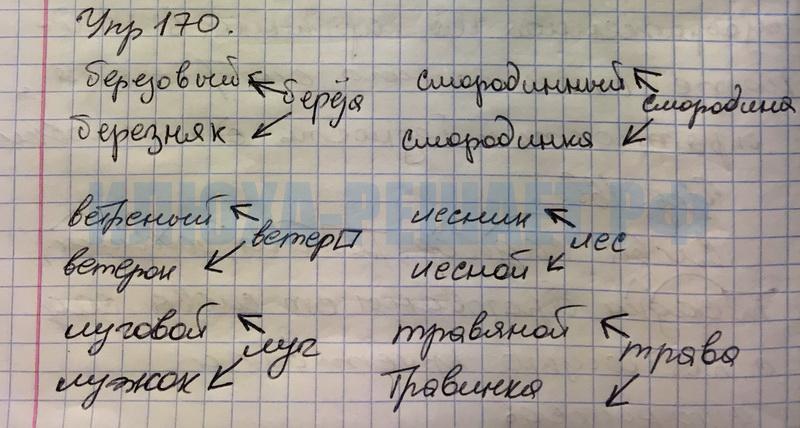 Упр 170.
березовый
берёза
березняк
смородинный
смородина
смородинка
ИЛЮХА-РЕШАЕТ.РФ
ветреный
ветер
ветерок
лесник
лес
лесной
луговой
луг
лужок
травяной
трава
Травинка